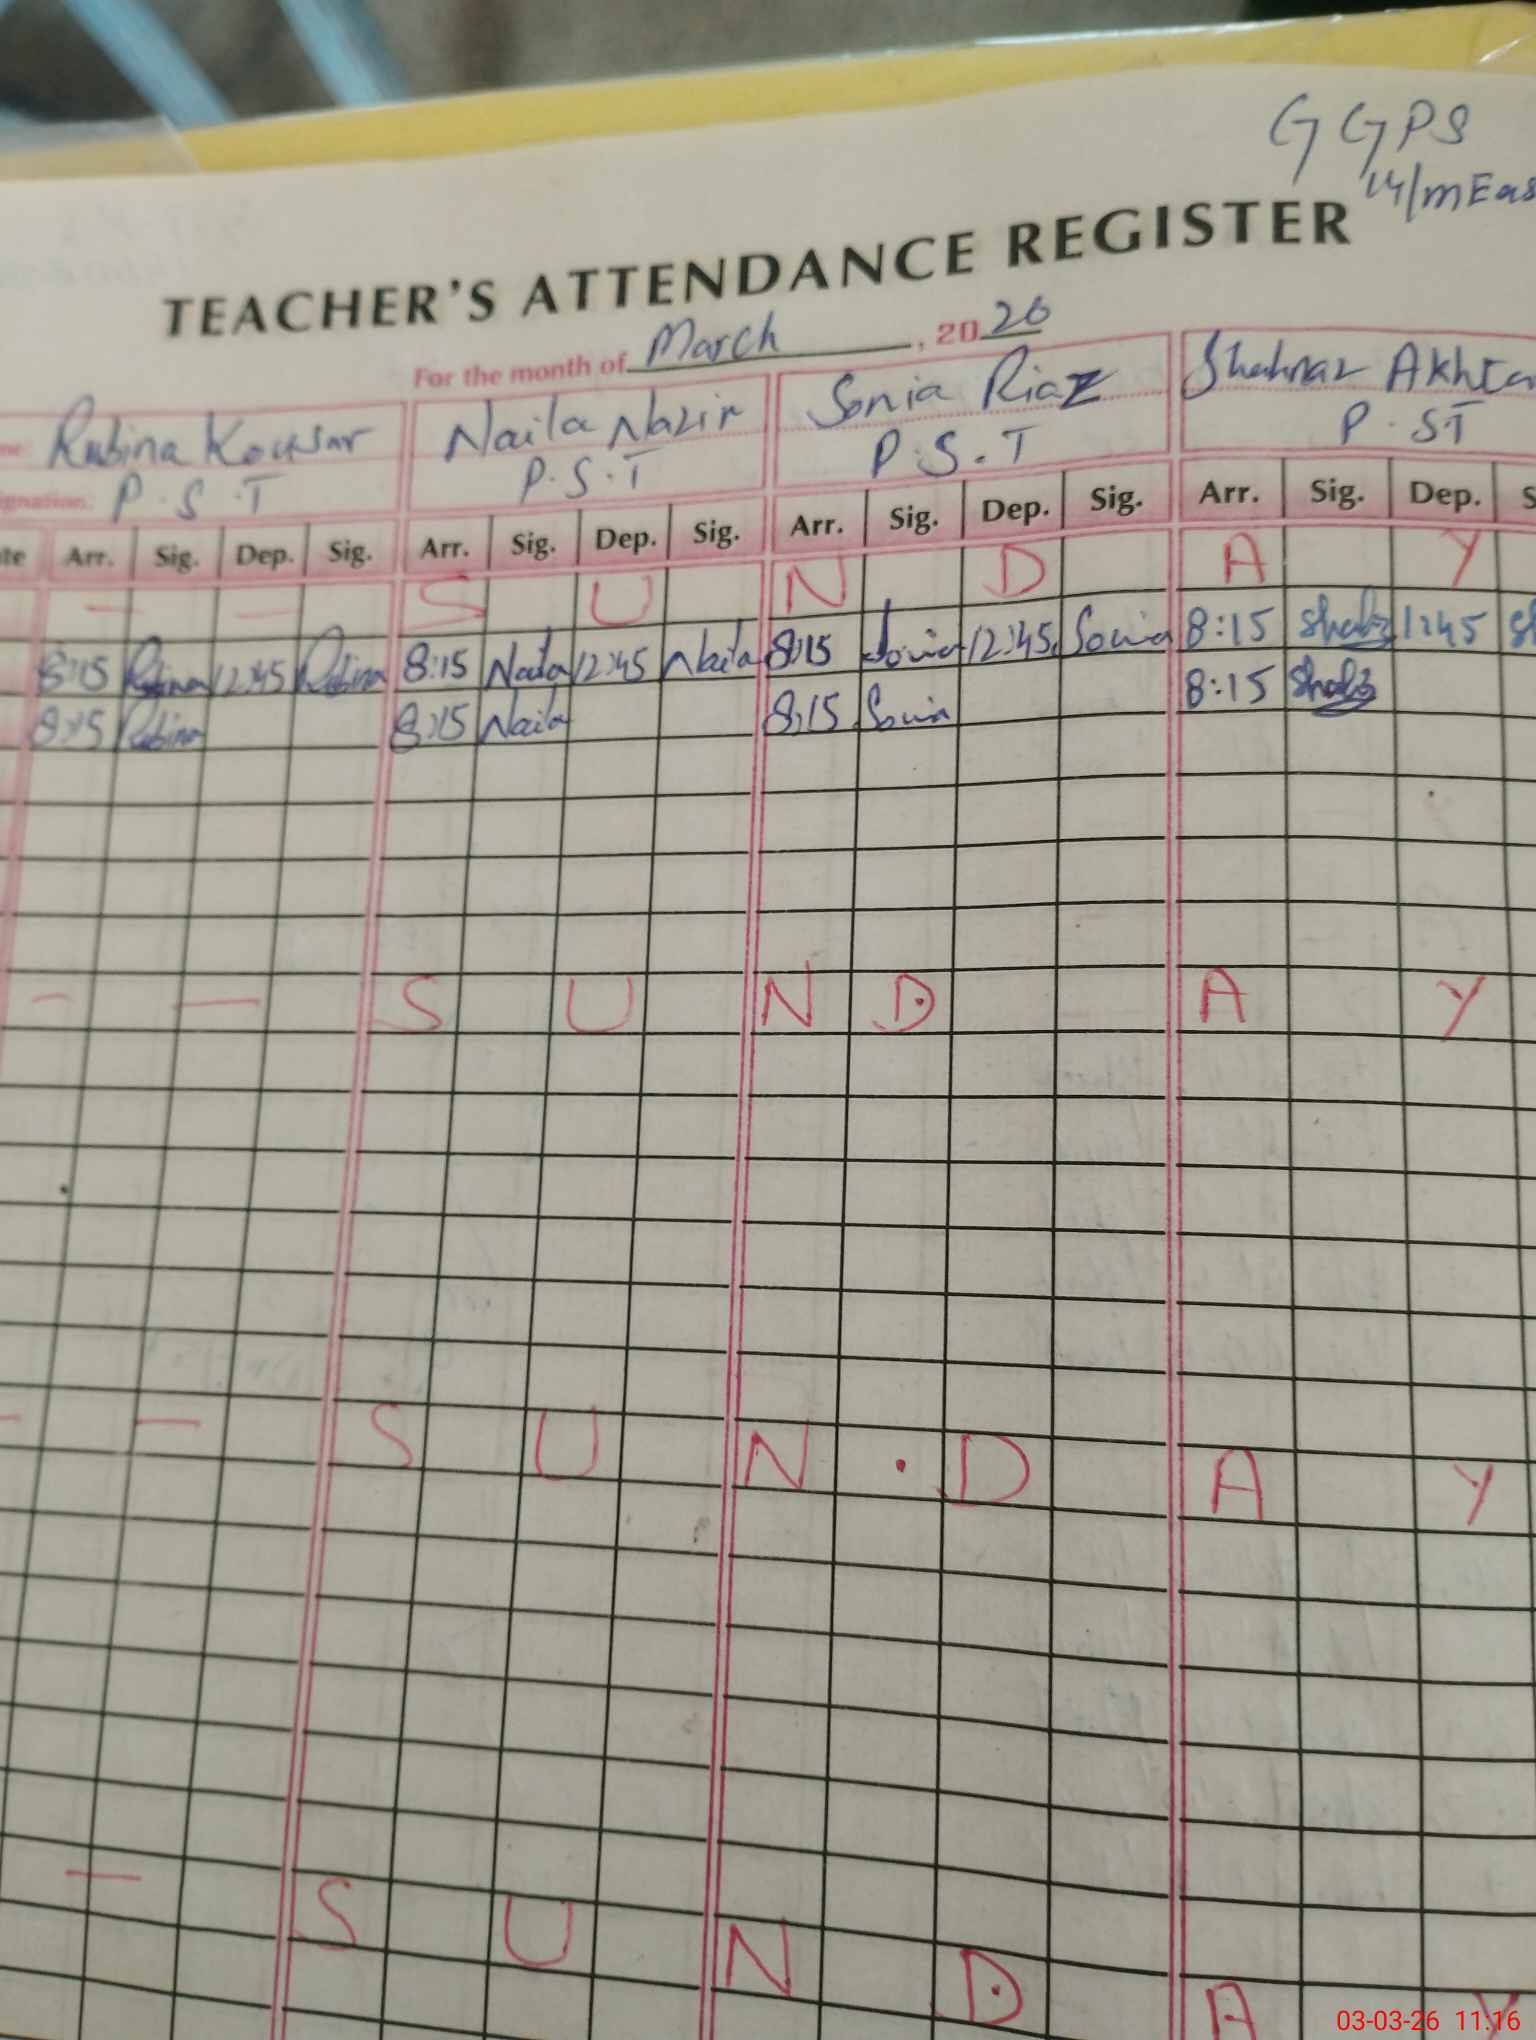 GGPS
14/m Eas
TEACHER'S ATTENDANCE REGISTER
For the month of March, 2026
Rubina Kousar Naila Nazir Sonia Riaz Shahnaz Akhta
P.S.T P.S.T P.S.T P.ST
te Arr. Sig. Dep. Sig. Arr. Sig. Dep. Sig. Arr. Sig. Dep. Sig. Arr. Sig. Dep. S
- - S U N D A Y
8:15 Rubina 12:45 Rubina 8:15 Naila 12:45 Naila 8:15 Sonia 12:45 Sonia 8:15 12:45
8:15 Rubina 8:15 Naila 8:15 Sonia 8:15
- - S U N D A Y
- - S U N D A Y
- S U N D A Y
03-03-26 11:16